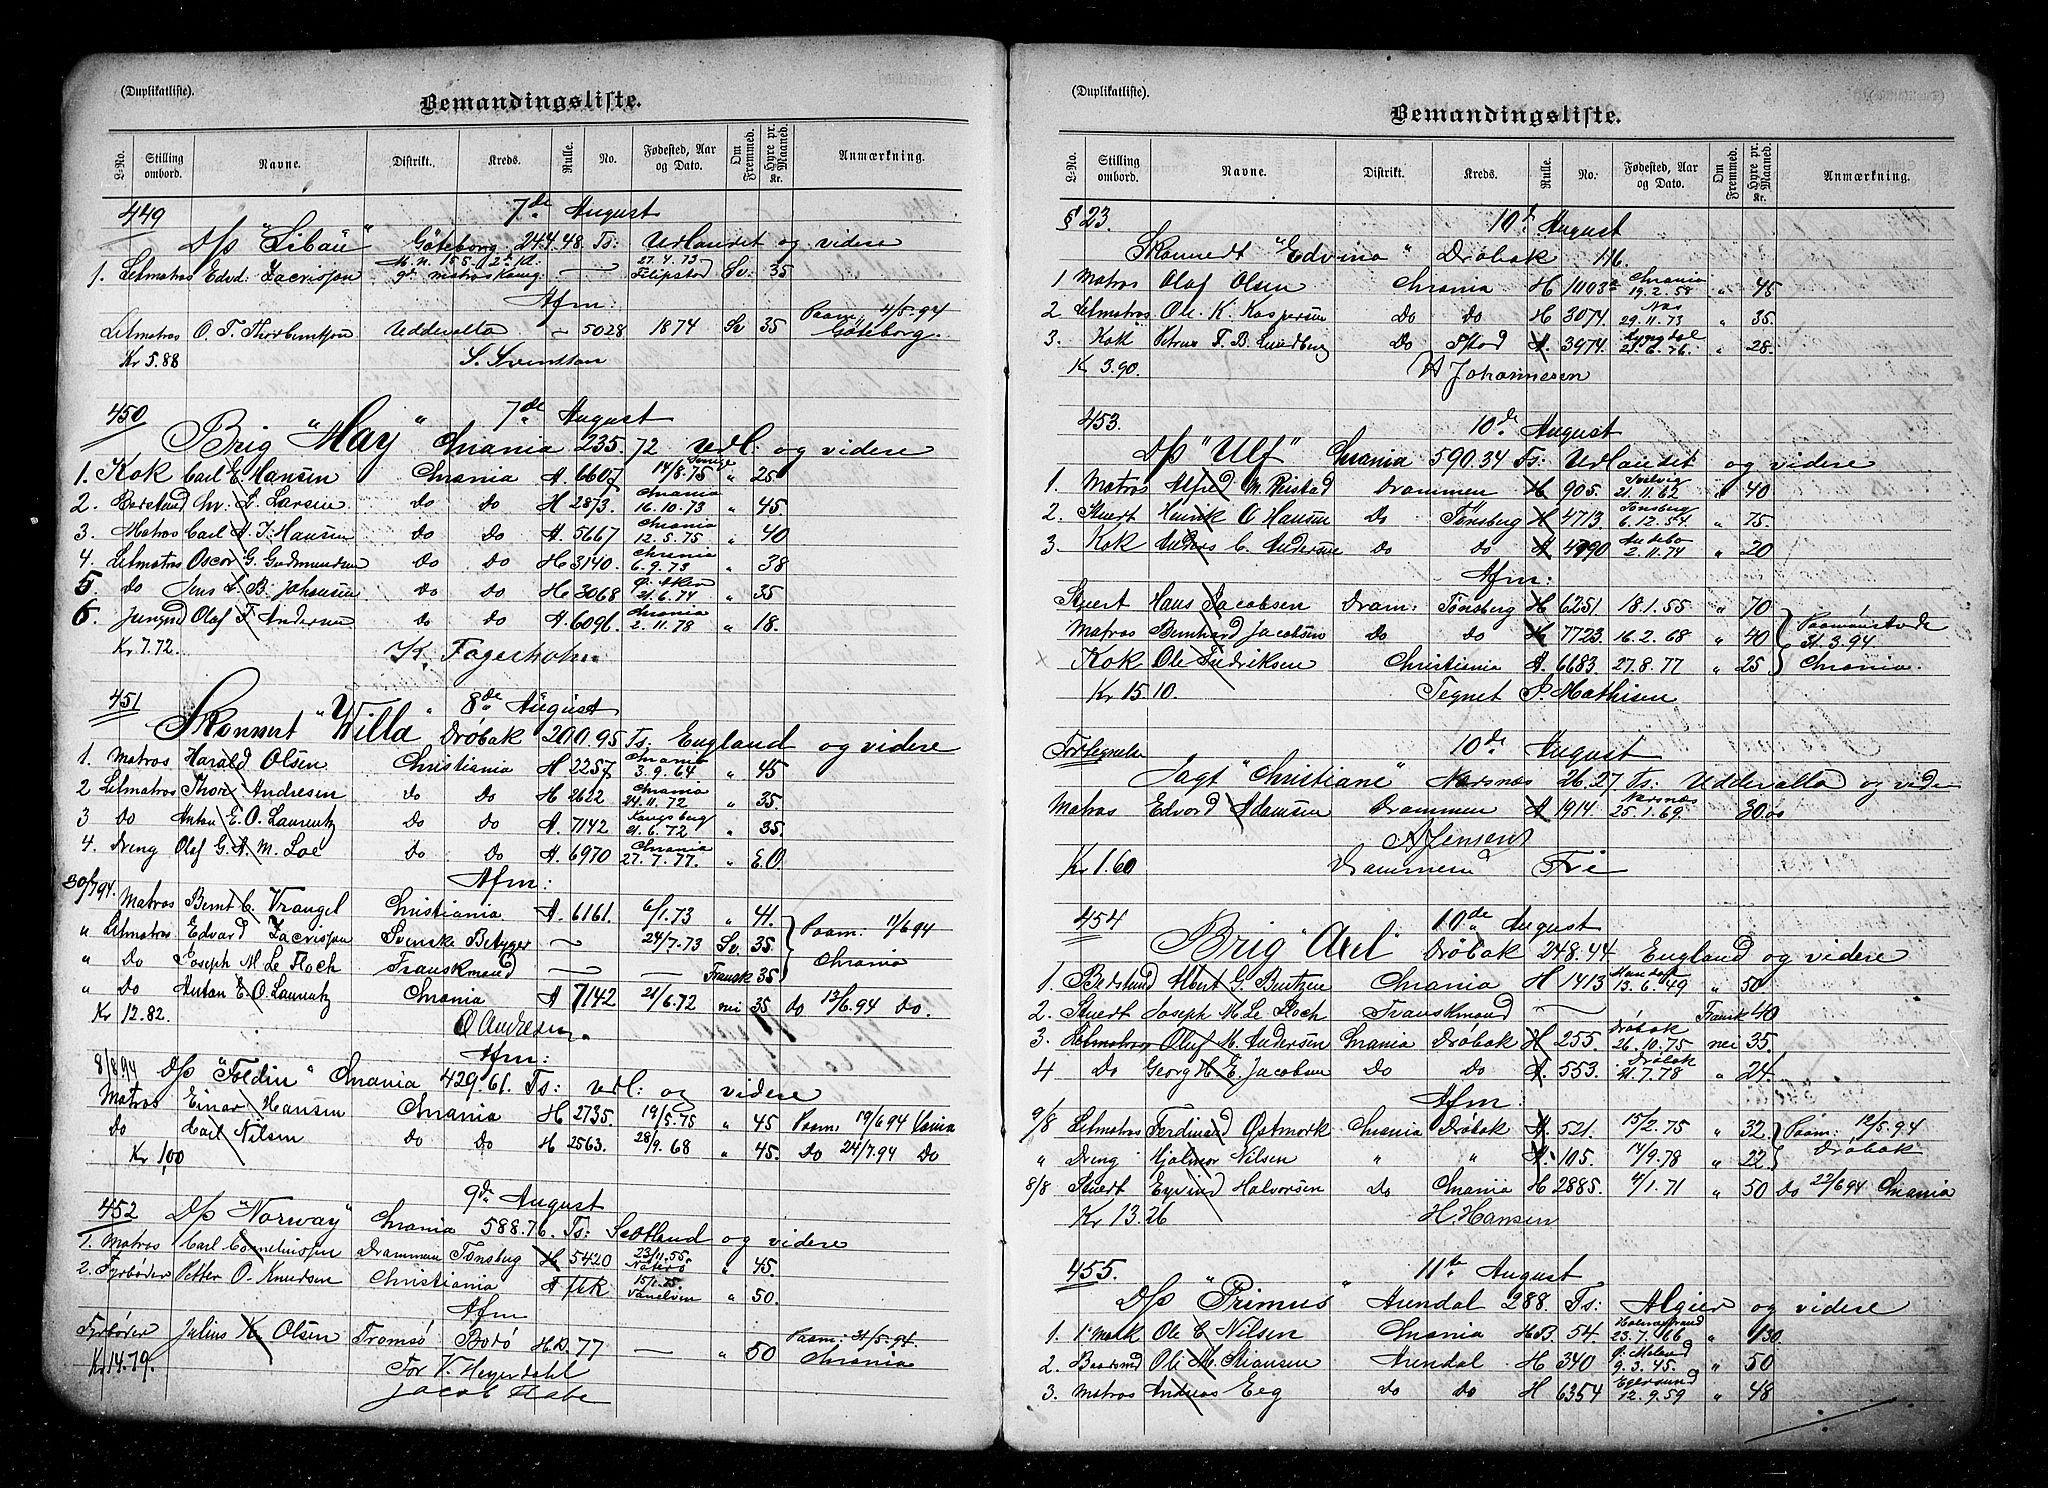 (Duplikatliste).
Bemandingsliste.
L-No. Stilling ombord. Navne. Distrikt. Kreds. Rulle. No. Fødested, Aar og Dato. Om Fremmed. Hyre pr. Maaned. Kr. Anmærkning.
449 7de August
D/p "Libau" Göteborg 244.48 Ts: Udlandet og videre
1. Letmatros Edvd. Zacrisson M. n. 155. 2 Kl. — 27.4.73 Filipstad Sv. 35
Afm:
Letmatros O. T. Thorberntson Uddevalla — 5028 1874 Sv 35 Paam. 4/5.94 Göteborg
Kr 5.88 S. Svenston
450 7de August
Brig "May" Chrania 235.72 Udl: og videre
1. Kok Carl E. Hansen Chrania A. 6607 14/8.75 " 25
2. Bedstmd Chr. L. Larsen do do H 2873. Chrania 16.10.73 " 45.
3. Matros Carl A. J. Hansen Do Do A. 5667 Chrania 12.5.75 " 40
4. Letmatros Oscar G. Gudmundsen Do Do H. 3140. Chrania 6.9.73 " 38
5. Do Jens L. B. Johansen do Do H. 3068 Ø. Aker 21.6.74 " 35
6. Jungmd Olaf F. Andersen do do A. 6096. Chrania 2.11.78 " 18.
Kr 7.72. K. Fagerholm
451 8de August
Skonnert "Willa" Drøbak 200.95 Ts: England og videre
1. Matros Harald Olsen Christiania H 2257 Chrania 3.9.64 " 45
2 Letmatros Thor Andresen Do Do H 2622 Chrania 24.11.72 " 35.
3 Do Anton E. O. Laurentz Do Do A. 7142 Kongsberg 21.6.72 " 35.
4. Dreng Olaf G. A. M. Loe Do Do A. 6970 Chrania 27.7.77. " E.O.
Afm:
30/7 94. Matros Bernt C. Vrangel Christiania A. 6161. 6/1.73 " 41. Paam: 11/6 94 Chrania
" Letmatros Edvard Zacrisson Svenske Betyger — 24/7.73 Sv. 35
" Do Joseph M Le Floch Franskmand — — Fransk 35
" Do Anton E. O. Laurentz Chrania A 7142 21/6.72 nei 35 do 13/6.94 do.
Kr 12.82. O Andresen
Afm:
8/8.94 D/p "Foldin" Chrania 429.61. Ts: Udl: og videre
Matros Einar Hansen Chrania H 2735. 19/5.75 " 45 Paam: 19/6 94
Do Carl Nilsen Do Do H 2563. 28/9.68 " 45. Do 24/7.94 Do
Kr 1,00
9de August
452 D/p "Norway" Chrania 588.76. Ts: Scotland og videre
1. Matros Carl Corneliussen Drammen Tønsberg H 5420 23/11.55 Nøterø " 45.
2. Fyrbøder Petter O. Knudsen Christiania A 15/1.75. " 50.
Afm
Fyrbøder Julius K. Olsen Tromsø Bodø H.D. 77 — " 50 Paam: 31/5.94. Chrania
Kr 14.79. For V. Heyerdahl
Jacob
(Duplikatliste).
Bemandingsliste.
L-No. Stilling ombord. Navne. Distrikt. Kreds. Rulle. No. Fødested, Aar og Dato. Om Fremmed. Hyre pr. Maaned. Kr. Anmærkning.
§ 23. 10de August
Skonnert "Edvina" Drøbak 116.
1 Matros Olaf Olsen Chrania H 1103 Chrania 19.2.58 " 45
2. Letmatros Ole K. Kaspersen Do Do H 3074. Næs 29.11.73 " 35.
3. Kok Petrus F. B. Lundberg Do A 3974. 21.6.76. " 28.
Kr 3.90. Johannesen
453. 10de August
D/p "Ulf" Chrania 590.34 Ts: Udlandet og videre
1. Matros Alfred M. Ristad Drammen H 905. Svelvig 21.11.62 " 40
2. Stuert Henrik O Hansen Do Tønsberg H 4713 Tønsberg 6.12.54 " 75.
3. Kok Anders C. Andersen Do do A 4790 Andebo 2.11.74 " 20
Afm:
Stuert Hans Jacobsen Dram: Tønsberg H 6251. 18.1.55 " 70 Paamønstrede 31.3.94 Chrania.
Matros Bernhard Jacobsen Do do H 7723 16.2.68 " 40
x Kok Ole Fredriksen Christiania A. 6683 27.8.77 " 25
Kr 15.10. Tegnet P. Mathisen
Fortegnelse 10de August
Jagt "Christiane" Nærsnæs 26.27 Ts: Uddevalla og videre
Matros Edvard Adamsen Drammen A 1914. Nærsnæs 25.1.69. 30.00
A Jensen
Kr 1.60 Drammen Fri
454 10de August
Brig "Axel" Drøbak 248.44 England og videre
1. Bedstmd Albert G. Bentzen Chrania H 1413 Mandal 13.6.49 " 50
2. Stuert Joseph M. Le Floch Franskmand — Fransk 40
3. Letmatros Oluf M. Andersen Chrania Drøbak H 255. Drøbak 26.10.75 nei 35.
4 Do Georg H. E. Jacobsen Do Do A 553. Drøbak 21.7.78 " 24.
Afm:
9/8 Letmatros Ferdinand Østmork Chrania Drøbak A. 521. 15/2.75 " 32 Paam: 12/5.94 Drøbak
" Dreng Hjalmar Nilsen " " A. 105. 14/9.78 " 22
8/8 Stuert Eyvind Halvorsen Do Chrania H 2885. 4/1.71 " 50 Do 22/6 94 Chrania
Kr 13.26 H. Hansen
455. 11te August
D/p "Primus" Arendal 288. Ts: Algier og videre
1. 1. Mask Ole C. Nilsen Chrania H.B. 54. Holmestrand 23.7.66 " 130.
2. Baadsmd Ole M. Stiansen Arendal H 340 Ø. Moland 9.3.45. " 50
3. Matros Andreas Eeg Do Do H 6354 Egersund 12.9.59 " 48